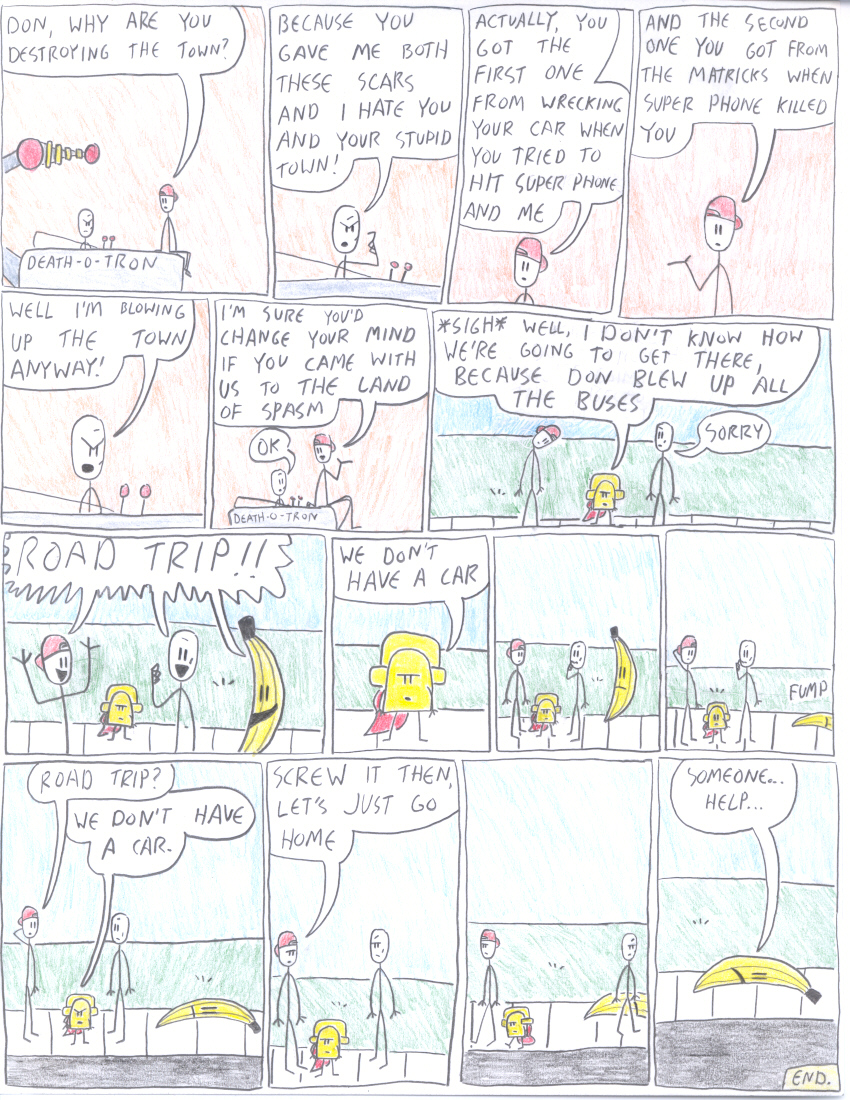 DON, WHY ARE YOU
DESTROYING THE TOWN?
DEATH-O-TRON
BECAUSE YOU
GAVE ME BOTH
THESE SCARS
AND I HATE YOU
AND YOUR STUPID
TOWN!
ACTUALLY, YOU
GOT THE
FIRST ONE
FROM WRECKING
YOUR CAR WHEN
YOU TRIED TO
HIT SUPER PHONE
AND ME
AND THE SECOND
ONE YOU GOT FROM
THE MATRICKS WHEN
SUPER PHONE KILLED
YOU
WELL I'M BLOWING
UP THE TOWN
ANYWAY!
I'M SURE YOU'D
CHANGE YOUR MIND
IF YOU CAME WITH
US TO THE LAND
OF SPASM
OK
DEATH-O-TRON
*SIGH* WELL, I DON'T KNOW HOW
WE'RE GOING TO GET THERE,
BECAUSE DON BLEW UP ALL
THE BUSES
SORRY
ROAD TRIP!!
WE DON'T
HAVE A CAR
FUMP
ROAD TRIP?
WE DON'T HAVE
A CAR.
SCREW IT THEN,
LET'S JUST GO
HOME
SOMEONE...
HELP...
END.